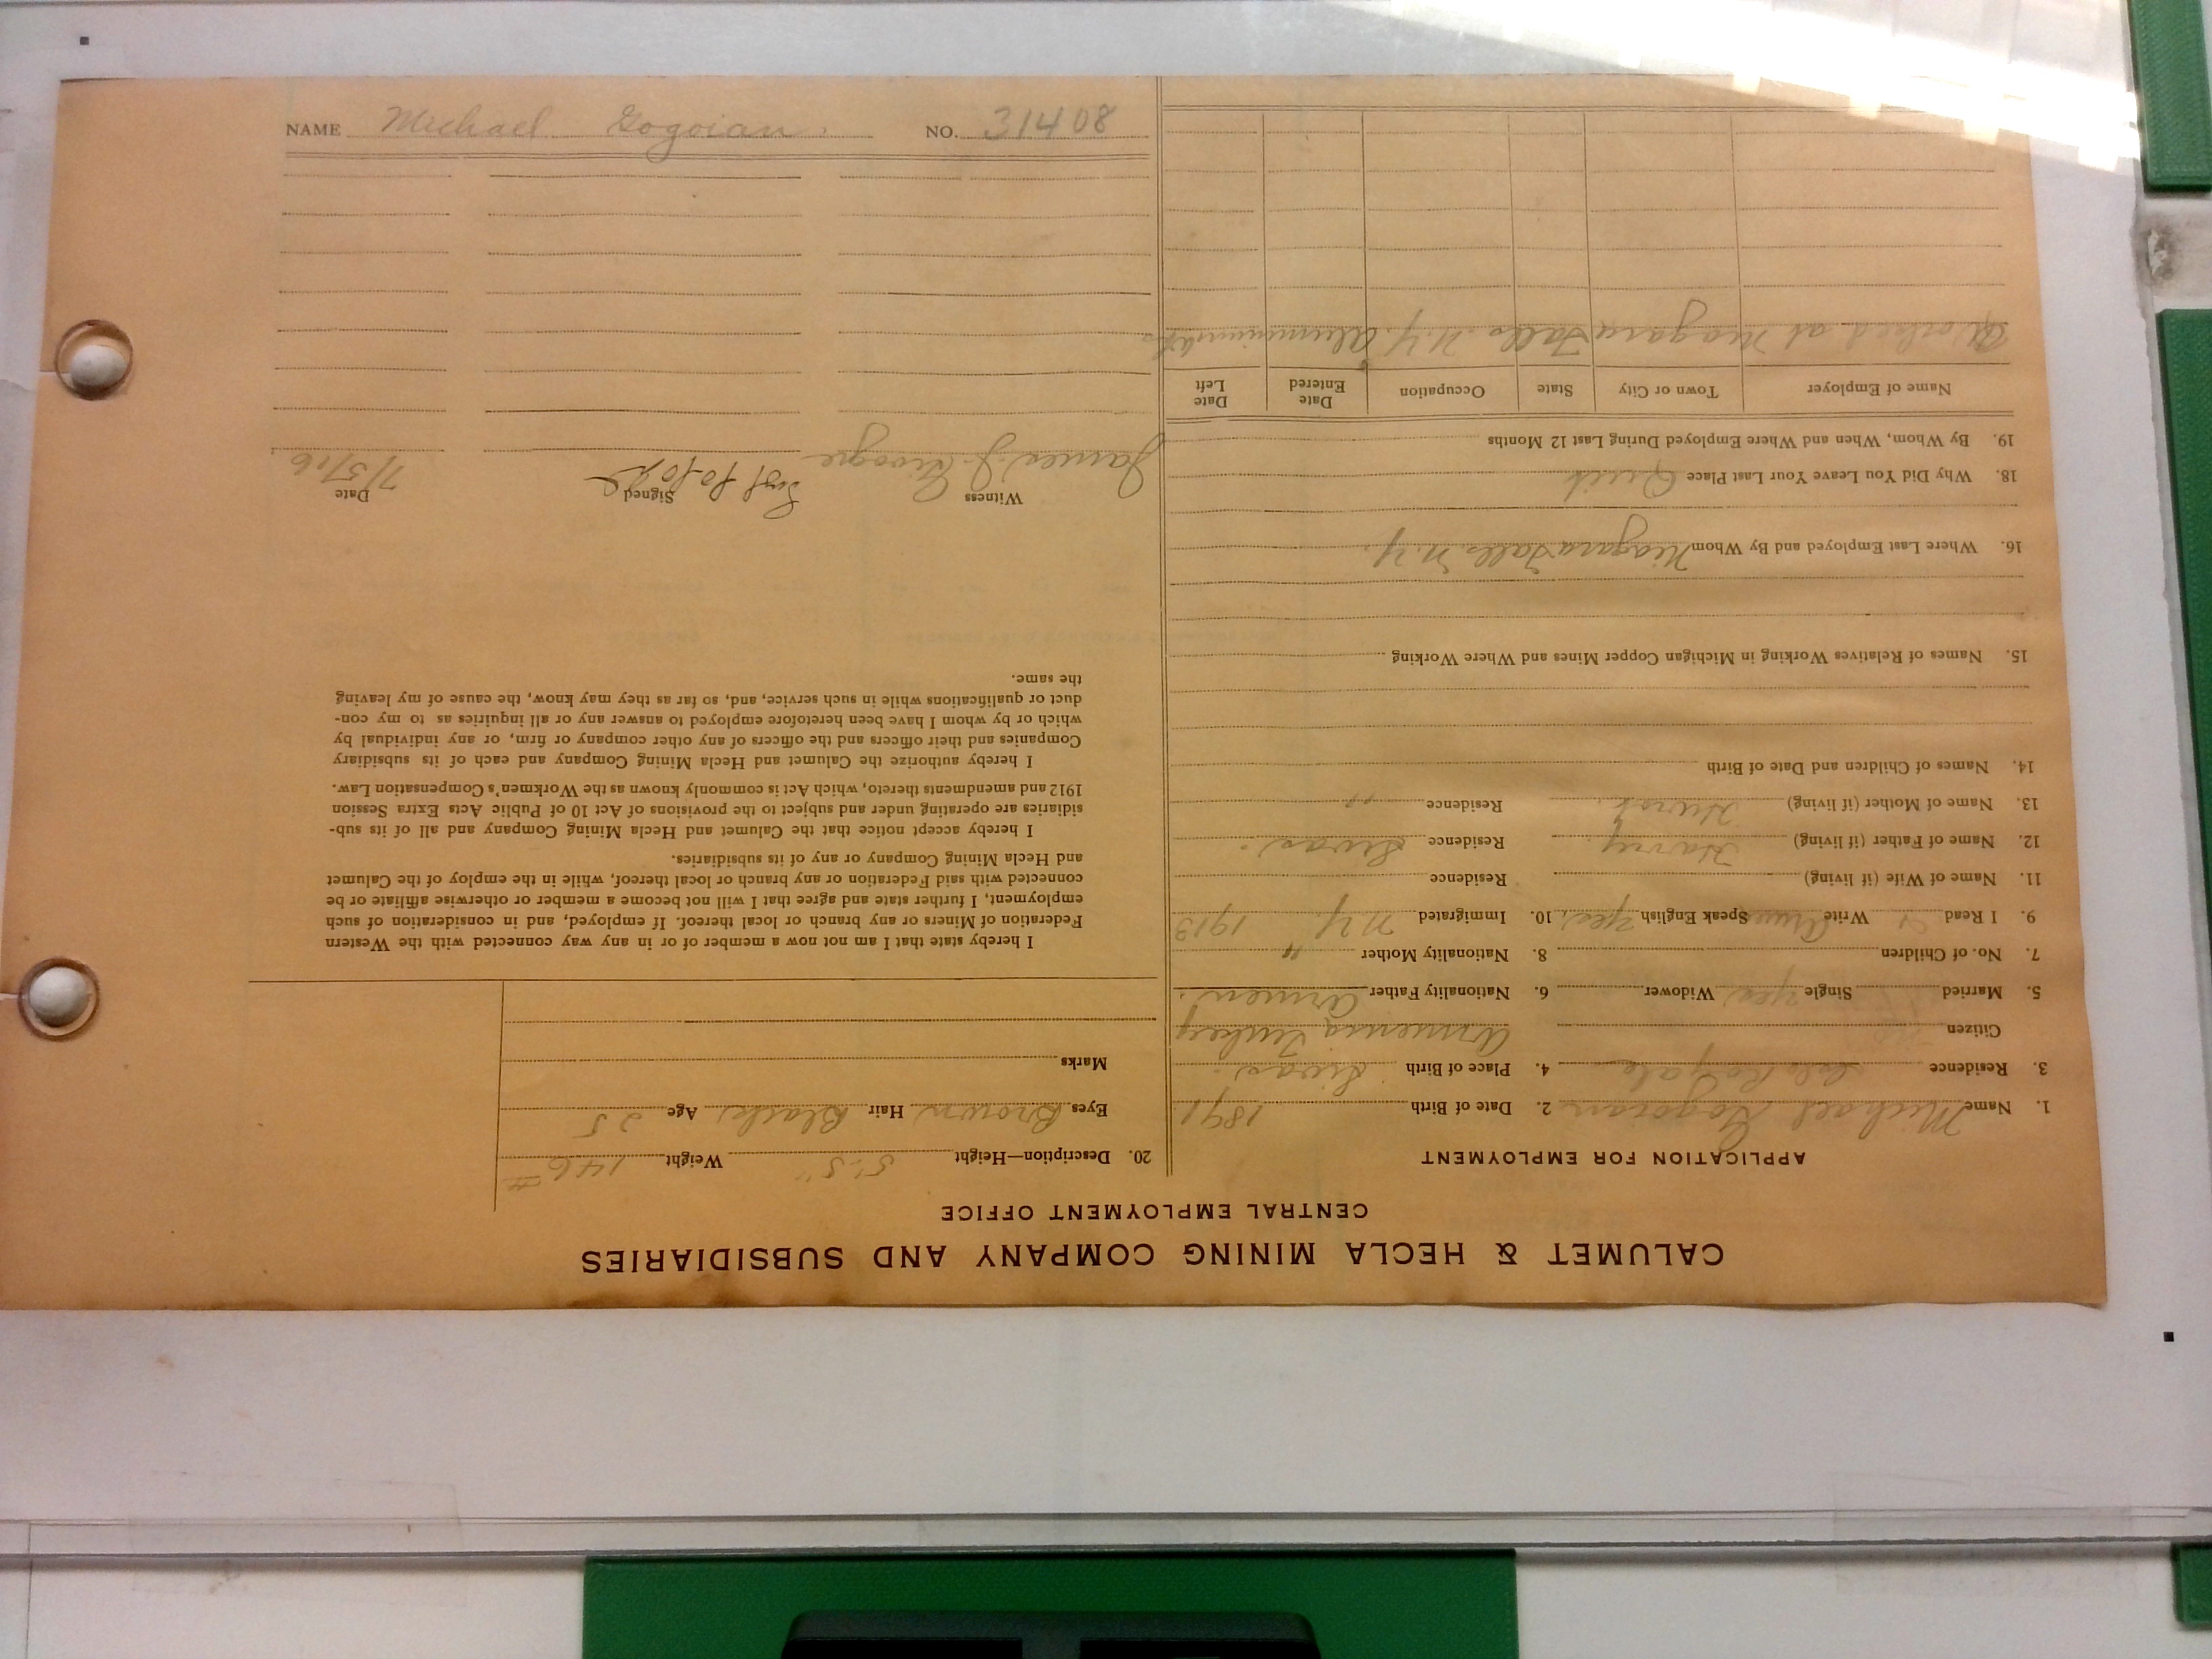 CALUMET & HECLA MINING COMPANY AND SUBSIDIARIES
CENTRAL EMPLOYMENT OFFICE
APPLICATION FOR EMPLOYMENT
1. Name Michael Gogoian 2. Date of Birth 1891
3. Residence Isle Royale 4. Place of Birth Sivas.
Citizen Armenia Turkey
5. Married Single Yes Widower 6. Nationality Father Armen.
7. No. of Children 8. Nationality Mother "
9. I Read Write Speak English Yes 10. Immigrated N.Y. 1913
11. Name of Wife (if living) Residence
12. Name of Father (if living) Harry. Residence Sivas.
13. Name of Mother (if living) Residence "
14. Names of Children and Date of Birth
15. Names of Relatives Working in Michigan Copper Mines and Where Working
16. Where Last Employed and By Whom Niagara Falls N.Y.
18. Why Did You Leave Your Last Place Quit
19. By Whom, When and Where Employed During Last 12 Months
Name of Employer Town or City State Occupation Date Entered Date Left
Worked at Niagara Falls N.Y.
20. Description—Height 5'-5" Weight 146#
Eyes Brown Hair Black Age 25
Marks
I hereby state that I am not now a member of or in any way connected with the Western
Federation of Miners or any branch or local thereof. If employed, and in consideration of such
employment, I further state and agree that I will not become a member or otherwise affiliate or be
connected with said Federation or any branch or local thereof, while in the employ of the Calumet
and Hecla Mining Company or any of its subsidiaries.
I hereby accept notice that the Calumet and Hecla Mining Company and all of its sub-
sidiaries are operating under and subject to the provisions of Act 10 of Public Acts Extra Session
1912 and amendments thereto, which Act is commonly known as the Workmen's Compensation Law.
I hereby authorize the Calumet and Hecla Mining Company and each of its subsidiary
Companies and their officers and the officers of any other company or firm, or any individual by
which or by whom I have been heretofore employed to answer any or all inquiries as to my con-
duct or qualifications while in such service, and, so far as they may know, the cause of my leaving
the same.
Witness Signed Date
James J. 7/5/16
NAME Michael Gogoian. NO. 31408